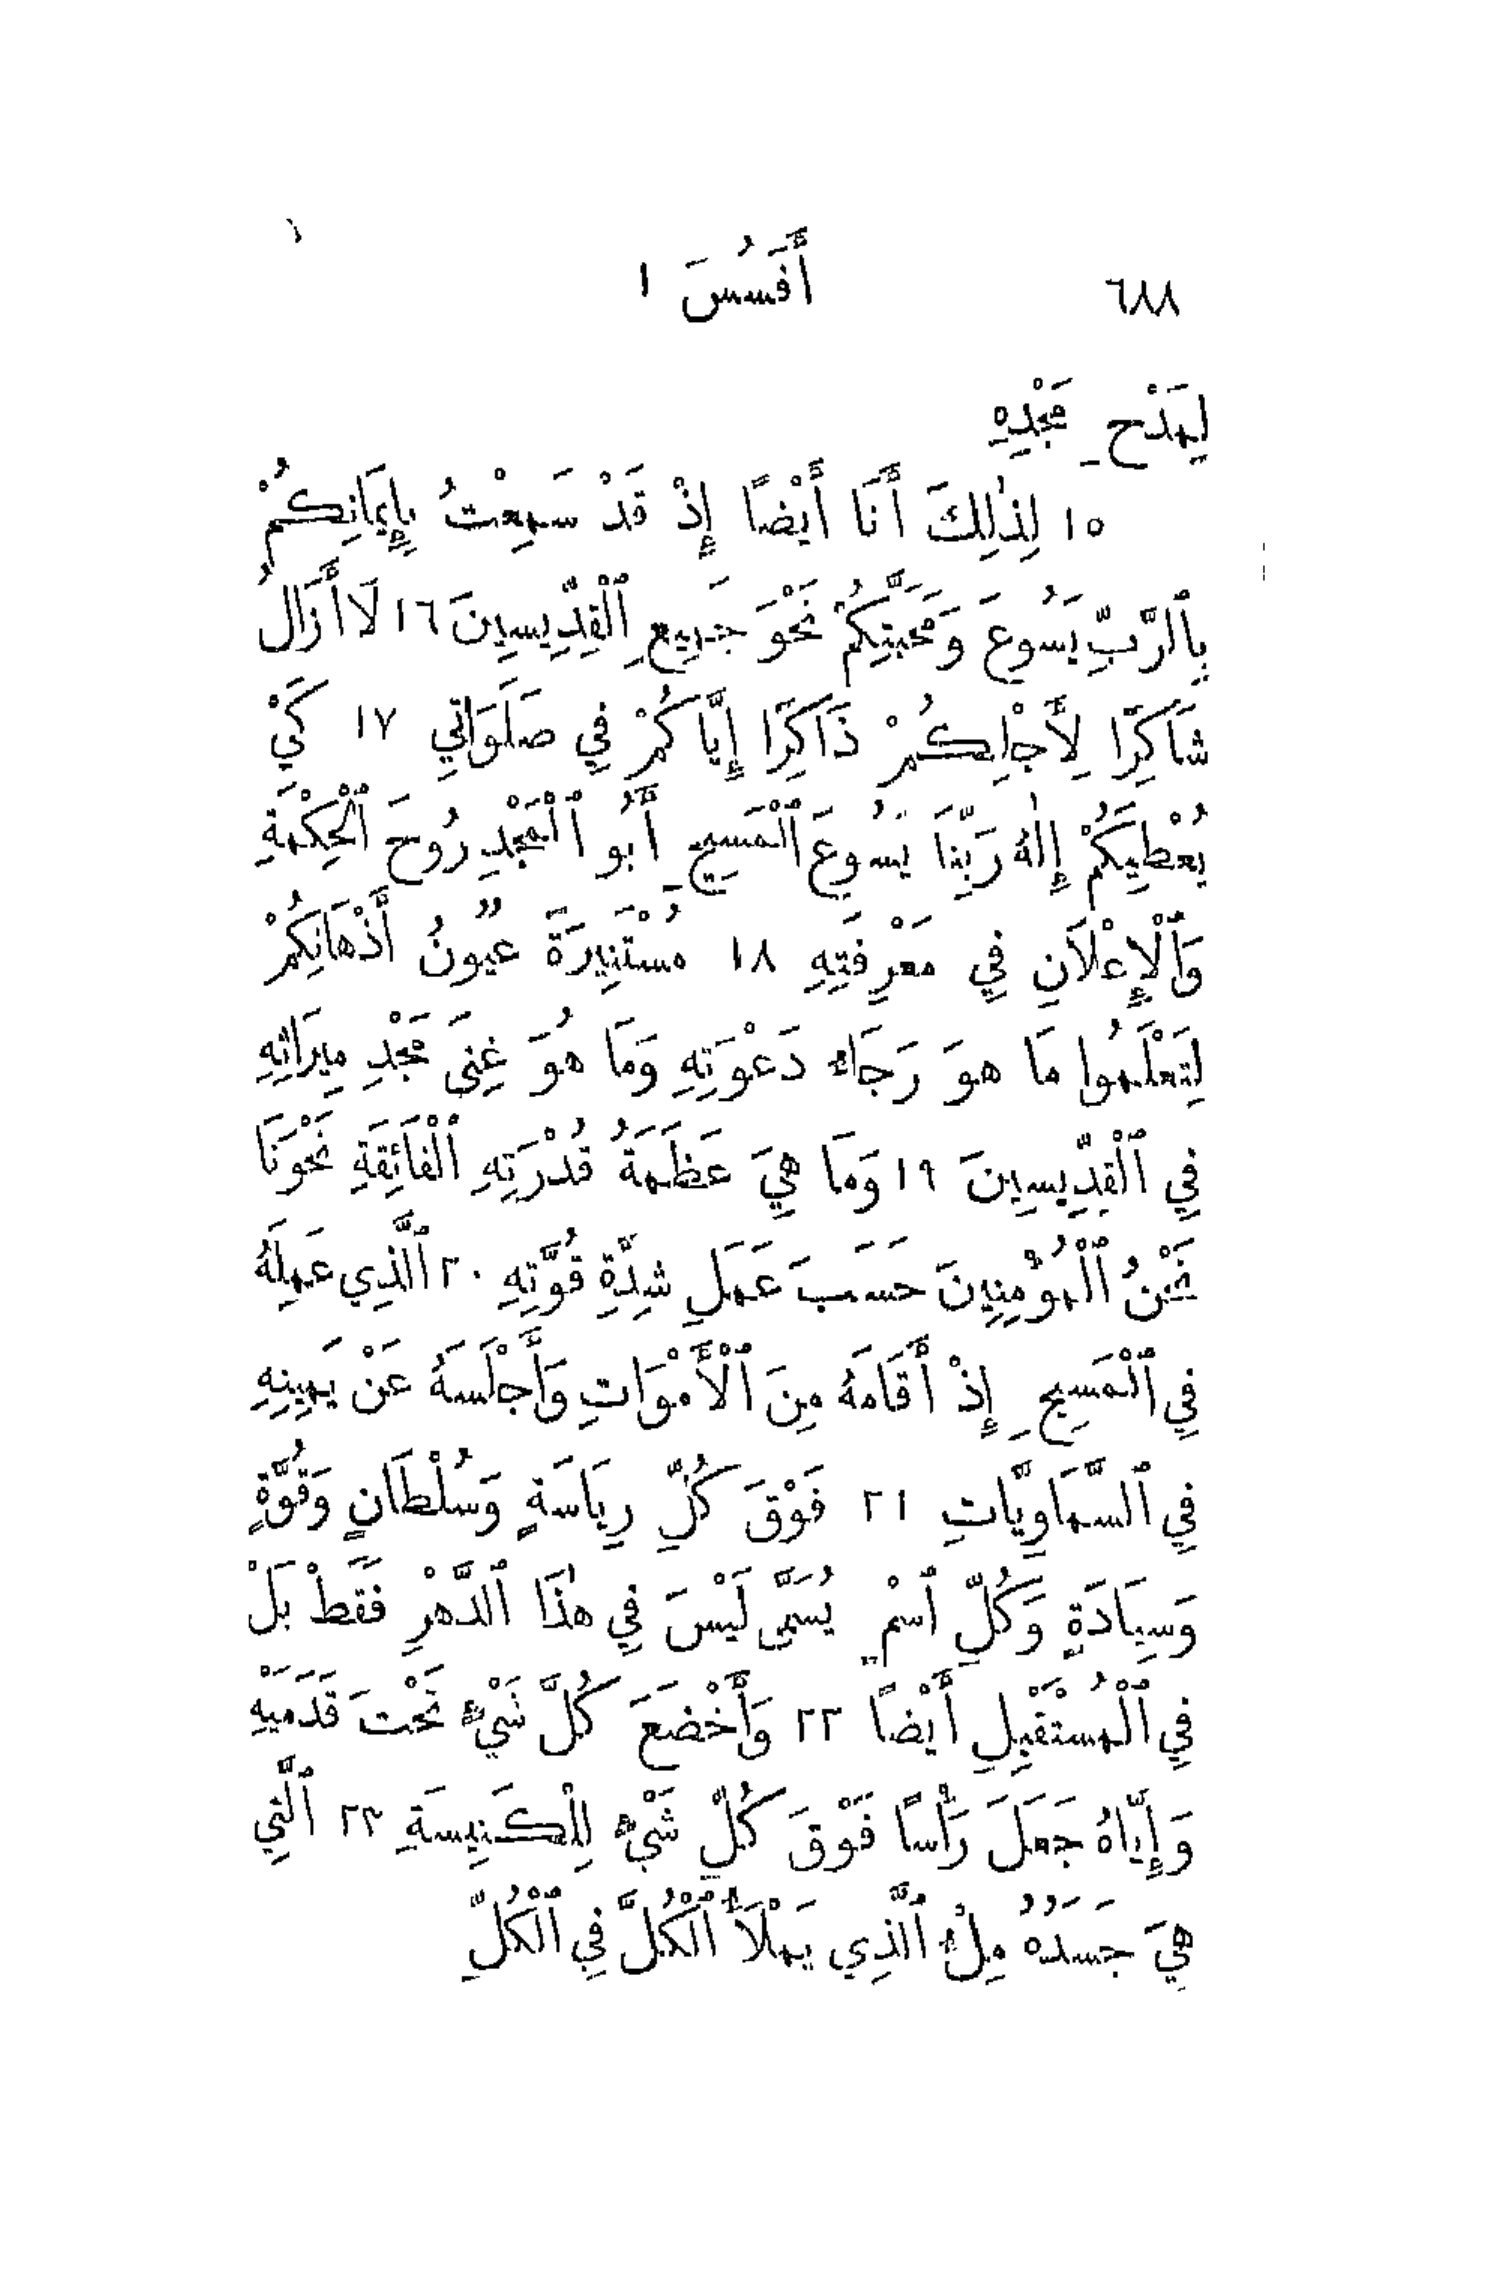 ٦٨٨ أَفَسُسَ ١
لِمَدْحِ مَجْدِهِ
١٥ لِذٰلِكَ أَنَا أَيْضًا إِذْ قَدْ سَمِعْتُ بِإِيمَانِكُمْ
بِٱلرَّبِّ يَسُوعَ وَمَحَبَّتِكُمْ نَحْوَ جَمِيعِ ٱلْقِدِّيسِينَ ١٦ لَا أَزَالُ
شَاكِرًا لِأَجْلِكُمْ ذَاكِرًا إِيَّاكُمْ فِي صَلَوَاتِي ١٧ كَيْ
يُعْطِيَكُمْ إِلٰهُ رَبِّنَا يَسُوعَ ٱلْمَسِيحِ أَبُو ٱلْمَجْدِ رُوحَ ٱلْحِكْمَةِ
وَٱلْإِعْلَانِ فِي مَعْرِفَتِهِ ١٨ مُسْتَنِيرَةً عُيُونُ أَذْهَانِكُمْ
لِتَعْلَمُوا مَا هُوَ رَجَاءُ دَعْوَتِهِ وَمَا هُوَ غِنَى مَجْدِ مِيرَاثِهِ
فِي ٱلْقِدِّيسِينَ ١٩ وَمَا هِيَ عَظَمَةُ قُدْرَتِهِ ٱلْفَائِقَةِ نَحْوَنَا
نَحْنُ ٱلْمُؤْمِنِينَ حَسَبَ عَمَلِ شِدَّةِ قُوَّتِهِ ٢٠ ٱلَّذِي عَمِلَهُ
فِي ٱلْمَسِيحِ إِذْ أَقَامَهُ مِنَ ٱلْأَمْوَاتِ وَأَجْلَسَهُ عَنْ يَمِينِهِ
فِي ٱلسَّمَاوِيَّاتِ ٢١ فَوْقَ كُلِّ رِيَاسَةٍ وَسُلْطَانٍ وَقُوَّةٍ
وَسِيَادَةٍ وَكُلِّ ٱسْمٍ يُسَمَّى لَيْسَ فِي هٰذَا ٱلدَّهْرِ فَقَطْ بَلْ
فِي ٱلْمُسْتَقْبِلِ أَيْضًا ٢٢ وَأَخْضَعَ كُلَّ شَيْءٍ تَحْتَ قَدَمَيْهِ
وَإِيَّاهُ جَعَلَ رَأْسًا فَوْقَ كُلِّ شَيْءٍ لِلْكَنِيسَةِ ٢٣ ٱلَّتِي
هِيَ جَسَدُهُ مِلْءُ ٱلَّذِي يَمْلَأُ ٱلْكُلَّ فِي ٱلْكُلِّ